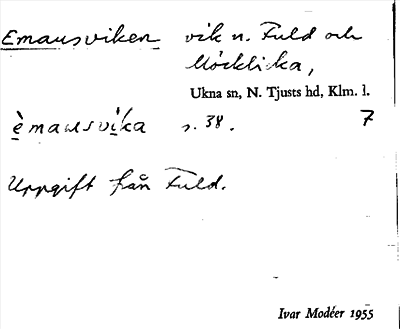 Emausviken vik n. Fuld och
Möcklicka,
Ukna sn, N. Tjusts hd, Klm. l.
èmausvi̇ka s. 38. 7
Uppgift från Fuld.
Ivar Modéer 1955